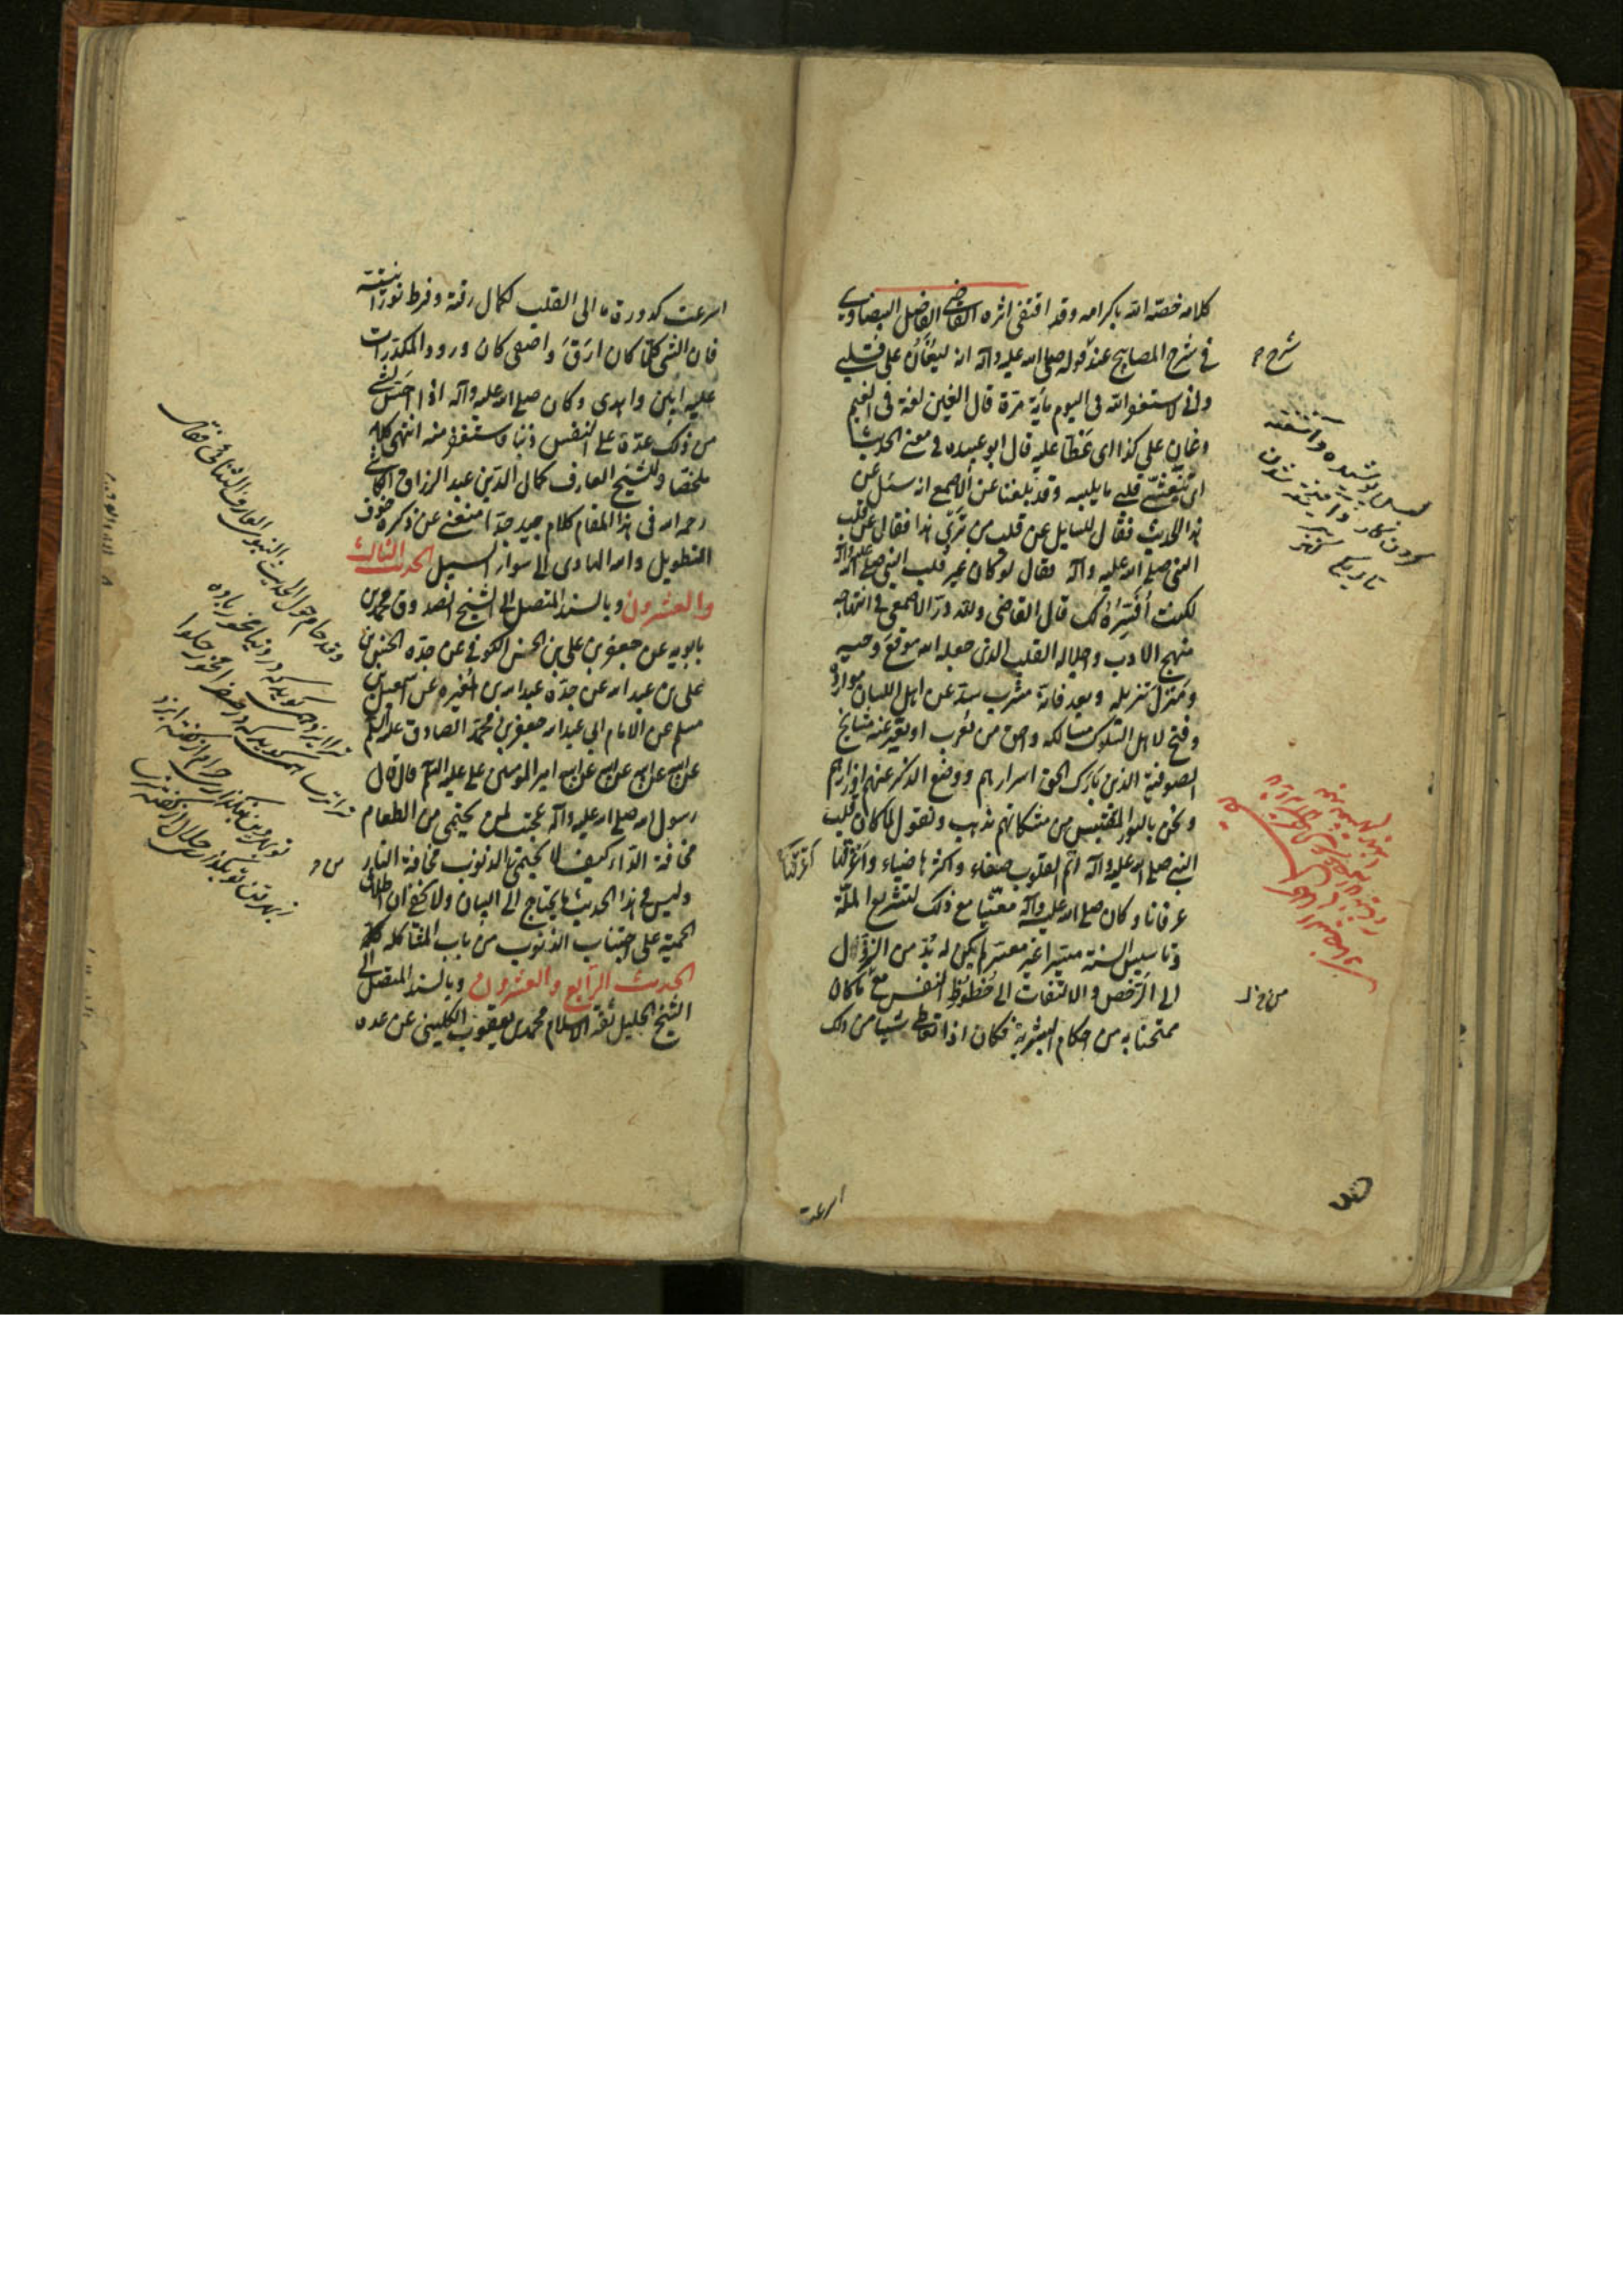 كلامه خصته الله باكرامه وقد اقتفى اثره القاضى الفاضل البيضاوى
فى شرح المصابيح عند قوله صلى الله عليه وآله انه ليغان على قلبى
وانى لاستغفر الله فى اليوم مأية مرة قال الغين لغة فى الغيم
وغان على كذا اى غطا عليه قال ابو عبيده فى معنى الحديث
اى يتغشى قلبى ما يلبسه وقد بلغنا عن الاصمعى انه سئل عن
هذا الحديث فقال للسايل عن قلب من تروى هذا فقال عن قلب
النبى صلى الله عليه وآله فقال لو كان غير قلب النبى صلى الله عليه وآله
لكنت افسره لك قال القاضى ولله در الاصمعى فى انتهاجه
منهج الادب واجلاله القلب الذى جعله الله موقع وحيه
ومنزل تنزيله وبعد فانه مشرب سد عن اهل اللسان موارده
وفتح لاهل السلوك مسالكه واحق من يعرب او يعبر عنه مشايخ
الصوفية الذين بارك الحق اسرارهم ووضع الذكر عنهم اوزارهم
ونحن بالنور المقتبس من مشكاتهم نذهب ونقول لما كان قلب
النبى صلى الله عليه وآله اتم القلوب صفاء واكثرها ضياء واعرفها
عرفانا وكان صلى الله عليه وآله معنيا مع ذلك لتشريع الملة
وتاسيس السنة ميسرا غير معسر لم يكن له بد من النزول
الى الرخص والالتفات الى حظوظ النفس مع ما كان
ممتحنا به من احكام البشرية فكان اذا تعاطى شيئا من ذلك
شرح
پوشيده وآشفته
كردن كار
تاريك
اسرعت
اسرعت كدورة ما الى القلب لكمال رقته وفرط نورانيته
فان الشى كلما كان ارق واصفى كان ورود المكدرات
عليه ابين واهدى وكان صلى الله عليه وآله اذا احس بشى
من ذلك عده على النفس ذنبا واستغفر منه انتهى كلامه
ملخصا وللشيخ العارف كمال الدين عبد الرزاق الكاشى
رحمه الله فى هذا المقام كلام جيد جدا منعنى عن ذكره خوف
التطويل والله الهادى الى سواء السبيل الحديث الثالث
والعشرون وبالسند المتصل الى الشيخ الصدوق محمد بن
بابويه عن جعفر بن على بن الحسن الكوفى عن جده الحسن بن
على بن عبد الله عن جده عبد الله بن المغيره عن اسمعيل بن
مسلم عن الامام ابى عبد الله جعفر بن محمد الصادق عليه السلام
عن ابيه عن ابيه عن ابيه عن ابيه امير المومنين على عليه السلم قال قال
رسول الله صلى الله عليه وآله عجبت لمن يحتمى من الطعام
مخافة الداء كيف لا يحتمى من الذنوب مخافة النار
وليس فى هذا الحديث ما يحتاج الى البيان ولا يخفى ان اطلاق
الحمية على اجتناب الذنوب من باب المشاكلة
الحديث الرابع والعشرون وبالسند المتصل الى
الشيخ الجليل ثقة الاسلام محمد بن يعقوب الكلينى عن عده
وقد حام حول الحديث النبوى العارف السنائى فقال
مر ترا ايزد همى گويد كه در دنيا مخور باده
ترا ترسا همى گويد كه در صفرا مخور حلوا
تو بهر دين نبگذارى حرام از گفته ايزد
ز بهر تن تو بگذارى حلال از گفته ترسا